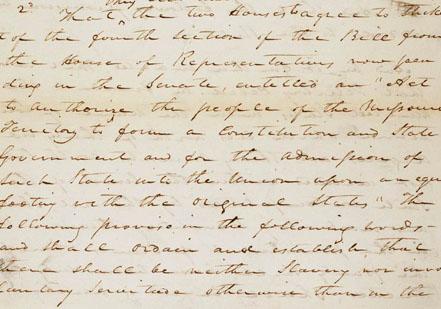 2d That, the two Houses agree to strik
t of the fourth section of the Bill from
the House of Representatives now pen
ding in the Senate, entitled an "Act
to authorize the people of the Missouri
Territory to form a Constitution and State
Government and for the admission of
such State into the Union upon an equ
footing with the original States" the
following proviso in the following words
and shall ordain and establish, that
there shall be neither Slavery nor invo
luntary Servitude otherwise than in the